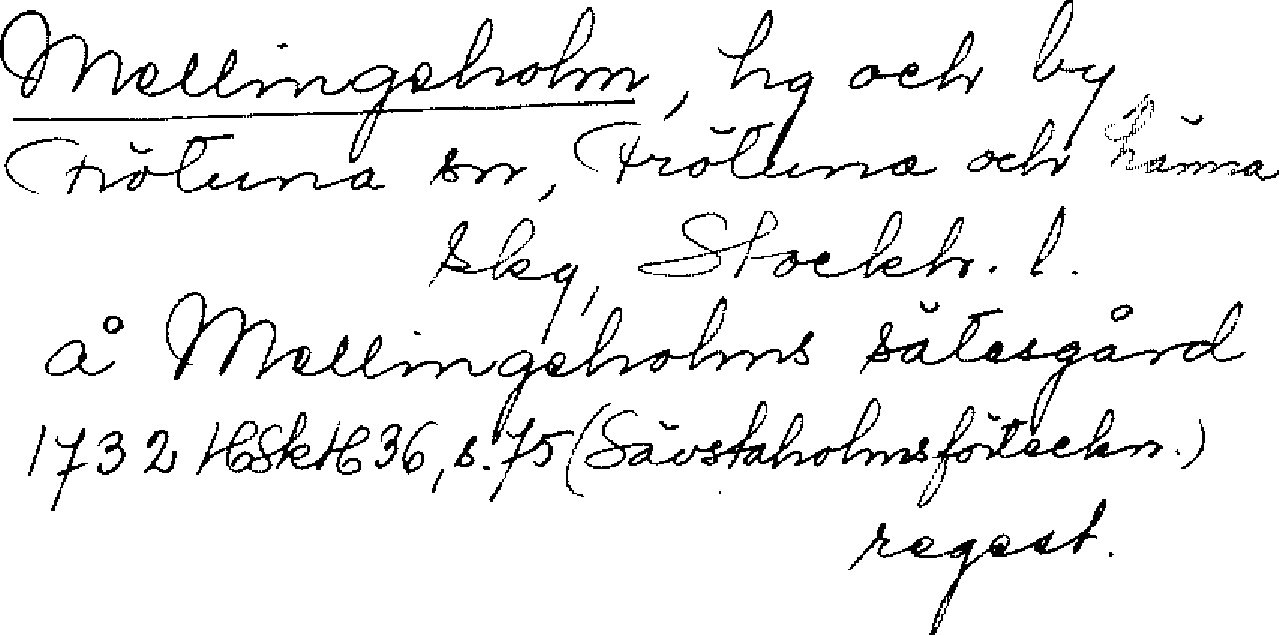 Mellingeholm, hg och by
Frötuna sn, Frötuna och Länna
skg, Stockh. l.
å Mellingeholms sätesgård
1732 HSkH 36, s. 75 (Sävstaholmsförteckn.)
regest.